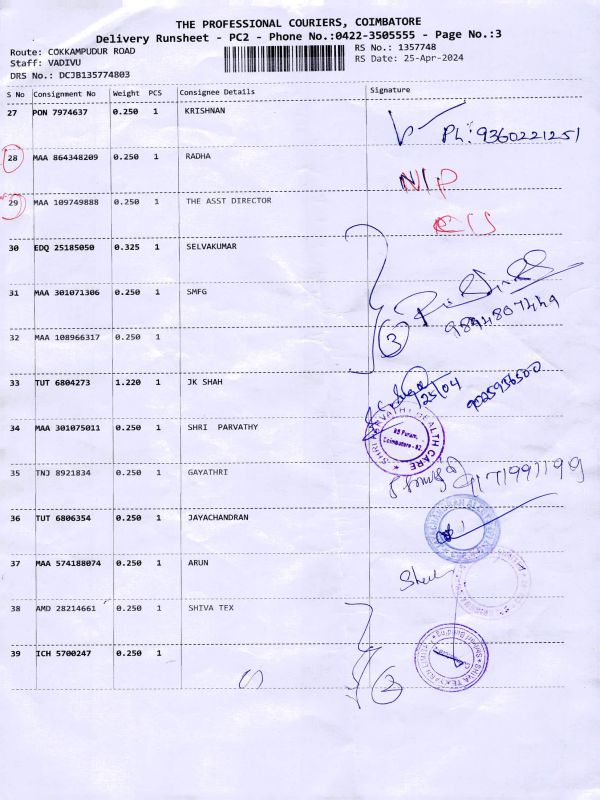 THE PROFESSIONAL COURIERS, COIMBATORE
Delivery Runsheet - PC2 - Phone No.:0422-3505555 - Page No.:3
Route: COKKAMPUDUR ROAD RS No.: 1357748
Staff: VADIVU RS Date: 25-Apr-2024
DRS No.: DCJB135774803
S No Consignment No Weight PCS Consignee Details Signature
27 PON 7974637 0.250 1 KRISHNAN
Ph: 9360221251
28 MAA 864348209 0.250 1 RADHA
NIP
29 MAA 109749888 0.250 1 THE ASST DIRECTOR
30 EDQ 25185050 0.325 1 SELVAKUMAR
31 MAA 301071306 0.250 1 SMFG
9894807449
32 MAA 108966317 0.250 1
3
33 TUT 6804273 1.220 1 JK SHAH
25/04
9025936500
34 MAA 301075011 0.250 1 SHRI PARVATHY
SHRI PARVATHY HEALTH CARE
RS Puram,
Coimbatore - 02.
35 TNJ 8921834 0.250 1 GAYATHRI
9171991199
36 TUT 6806354 0.250 1 JAYACHANDRAN
37 MAA 574188074 0.250 1 ARUN
38 AMD 28214661 0.250 1 SHIVA TEX
39 ICH 5700247 0.250 1
2